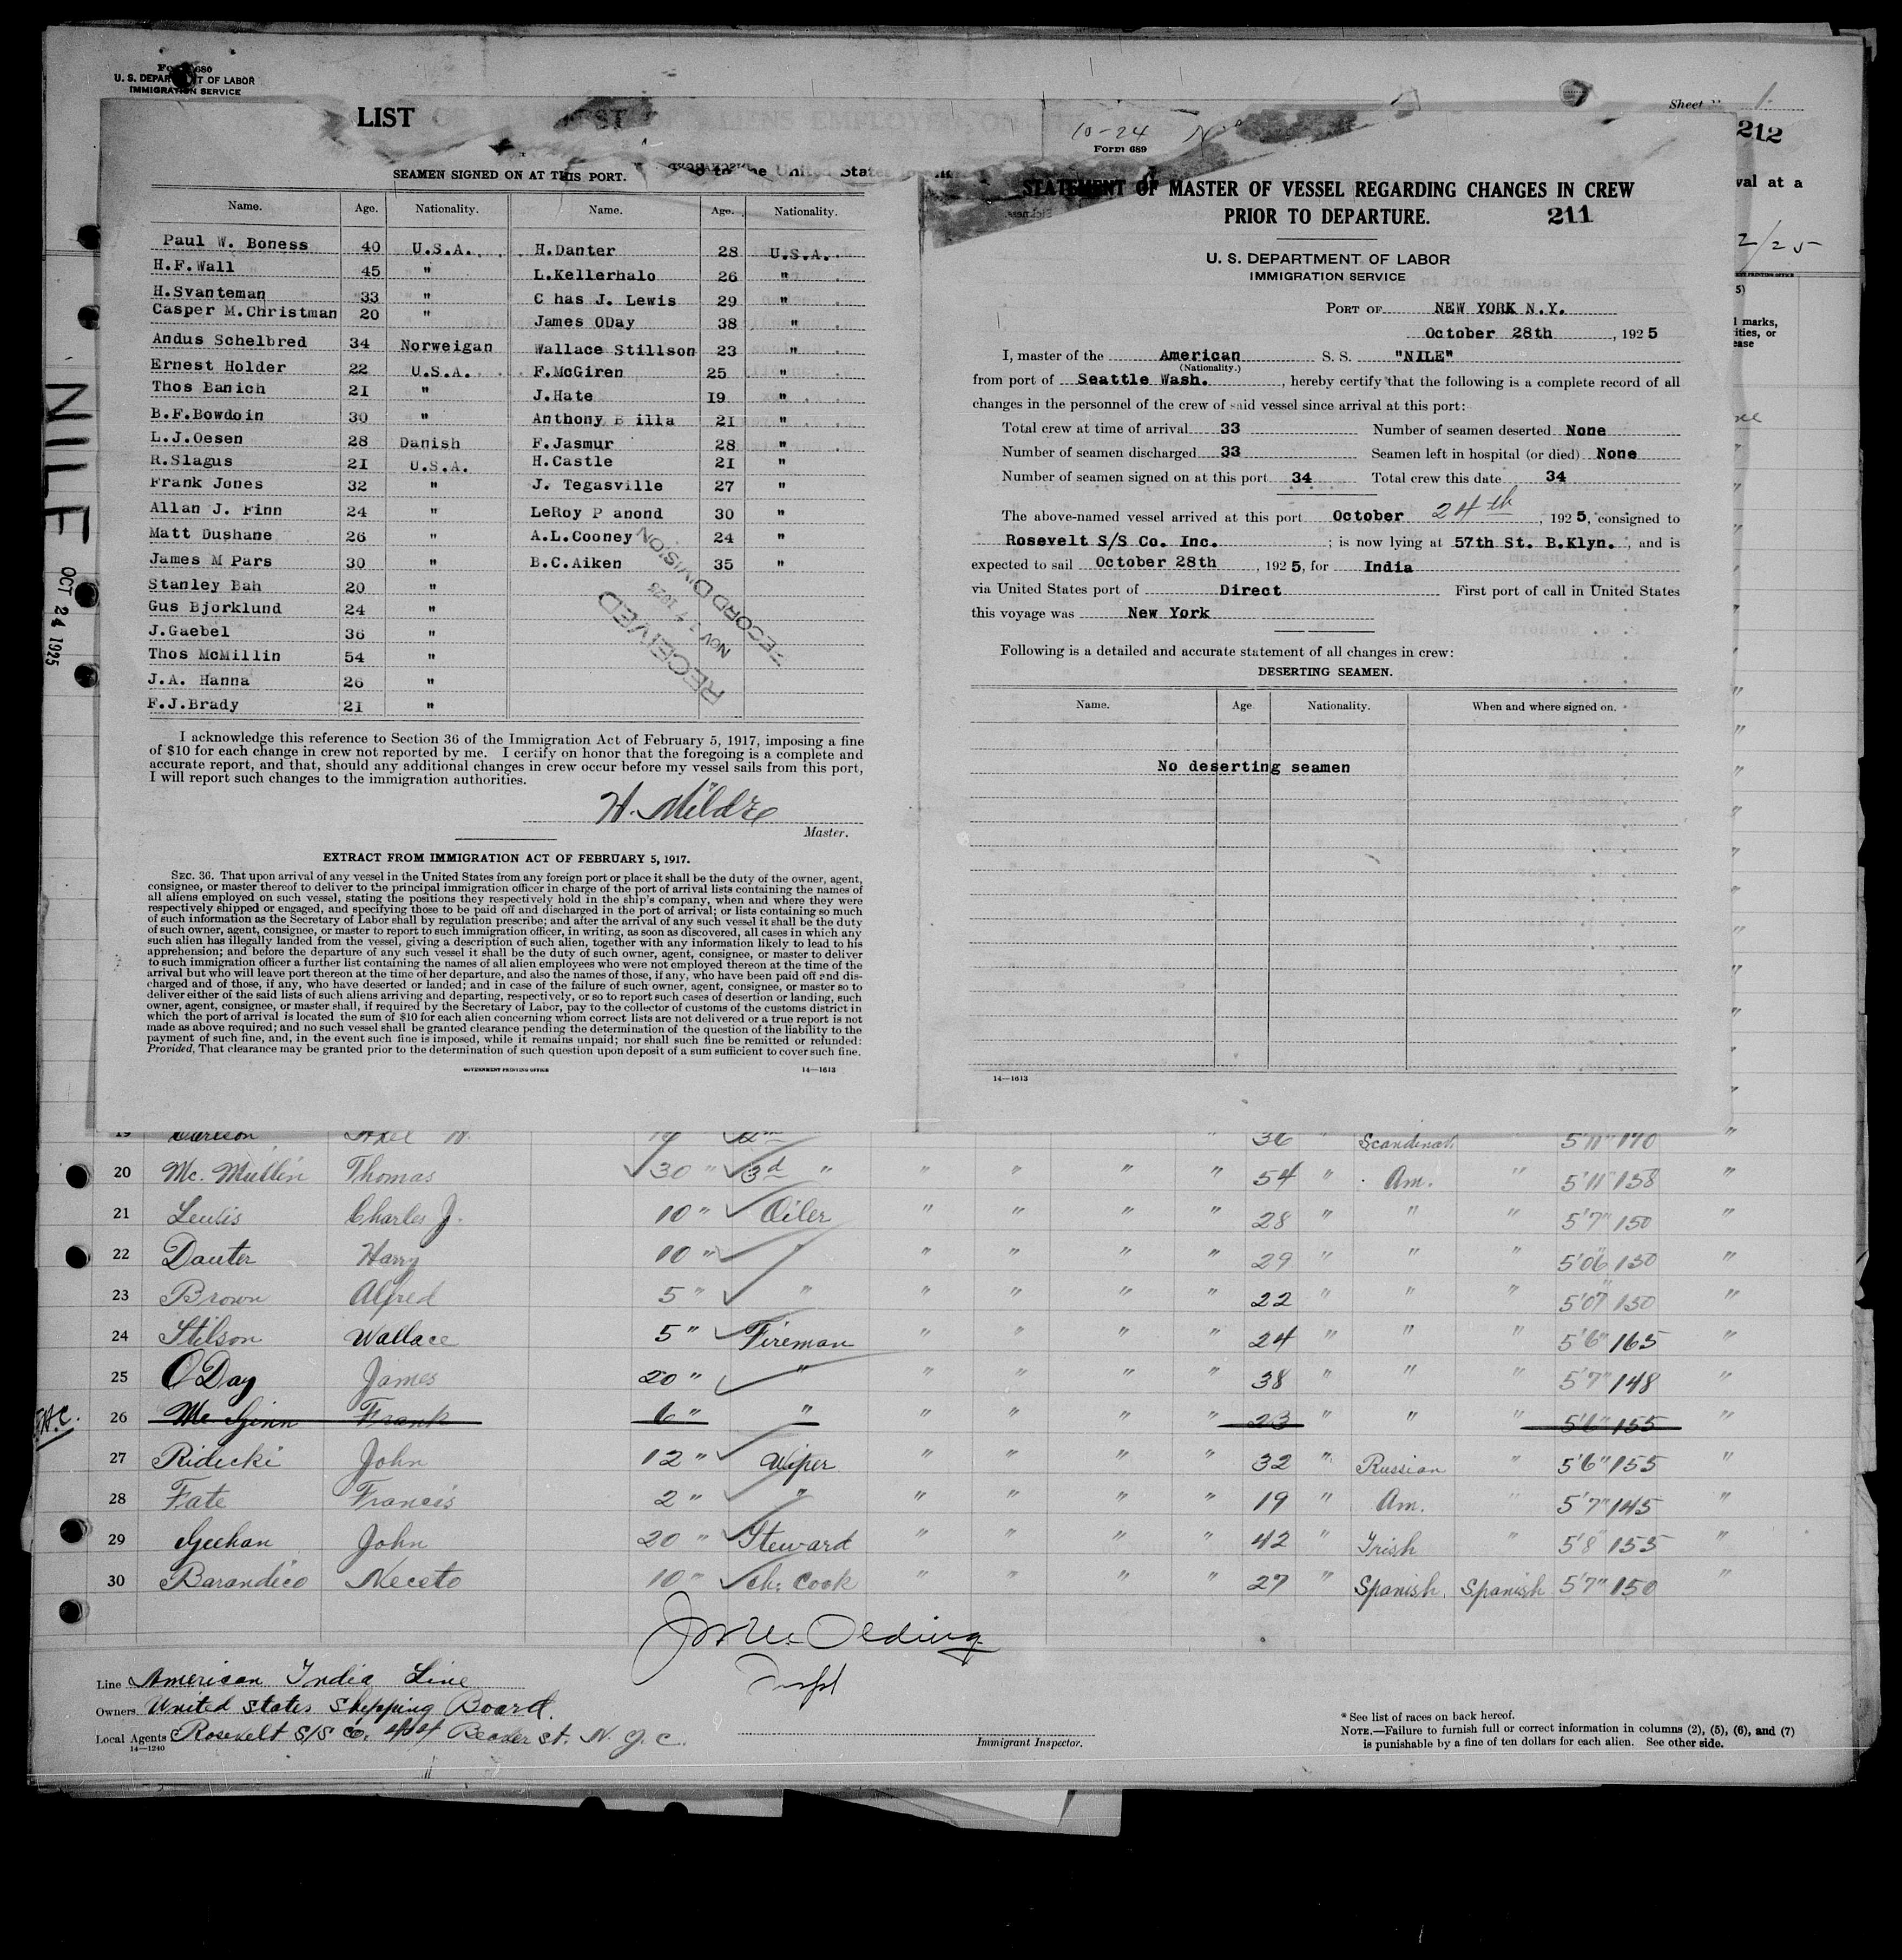 U. S. DEPARTMENT OF LABOR
IMMIGRATION SERVICE
LIST
Sheet 1
212
val at a
2/25
marks,
ities, or
ease
NILE
OCT 24 1925
SEAMEN SIGNED ON AT THIS PORT.
Name. Age. Nationality. Name. Age. Nationality.
Paul W. Boness 40 U.S.A. H.Danter 28 U.S.A.
H.F.Wall 45 " L.Kellerhalo 26 "
H.Svanteman 33 " C has J. Lewis 29 "
Casper M.Christman 20 " James ODay 38 "
Andus Schelbred 34 Norweigan Wallace Stillson 23 "
Ernest Holder 22 U.S.A. F.McGiren 25 "
Thos Banich 21 " J.Hate 19 "
B.F.Bowdoin 30 " Anthony B illa 21 "
L.J.Oesen 28 Danish F.Jasmur 28 "
R.Slagus 21 U.S.A. H.Castle 21 "
Frank Jones 32 " J. Tegasville 27 "
Allan J. Finn 24 " LeRoy P anond 30 "
Matt Dushane 26 " A.L.Cooney 24 "
James M Pars 30 " B.C.Aiken 35 "
Stanley Bah 20 "
Gus Bjorklund 24 "
J.Gaebel 36 "
Thos McMillin 54 "
J.A. Hanna 26 "
F.J.Brady 21 "
RECEIVED
NOV 1925
RECORD DIVISION
I acknowledge this reference to Section 36 of the Immigration Act of February 5, 1917, imposing a fine
of $10 for each change in crew not reported by me. I certify on honor that the foregoing is a complete and
accurate report, and that, should any additional changes in crew occur before my vessel sails from this port,
I will report such changes to the immigration authorities.
H. Mildre
Master.
EXTRACT FROM IMMIGRATION ACT OF FEBRUARY 5, 1917.
SEC. 36. That upon arrival of any vessel in the United States from any foreign port or place it shall be the duty of the owner, agent,
consignee, or master thereof to deliver to the principal immigration officer in charge of the port of arrival lists containing the names of
all aliens employed on such vessel, stating the positions they respectively hold in the ship's company, when and where they were
respectively shipped or engaged, and specifying those to be paid off and discharged in the port of arrival; or lists containing so much
of such information as the Secretary of Labor shall by regulation prescribe; and after the arrival of any such vessel it shall be the duty
of such owner, agent, consignee, or master to report to such immigration officer, in writing, as soon as discovered, all cases in which any
such alien has illegally landed from the vessel, giving a description of such alien, together with any information likely to lead to his
apprehension; and before the departure of any such vessel it shall be the duty of such owner, agent, consignee, or master to deliver
to such immigration officer a further list containing the names of all alien employees who were not employed thereon at the time of the
arrival but who will leave port thereon at the time of her departure, and also the names of those, if any, who have been paid off and dis-
charged and of those, if any, who have deserted or landed; and in case of the failure of such owner, agent, consignee, or master so to
deliver either of the said lists of such aliens arriving and departing, respectively, or so to report such cases of desertion or landing, such
owner, agent, consignee, or master shall, if required by the Secretary of Labor, pay to the collector of customs of the customs district in
which the port of arrival is located the sum of $10 for each alien concerning whom correct lists are not delivered or a true report is not
made as above required; and no such vessel shall be granted clearance pending the determination of the question of the liability to the
payment of such fine, and, in the event such fine is imposed, while it remains unpaid; nor shall such fine be remitted or refunded:
Provided, That clearance may be granted prior to the determination of such question upon deposit of a sum sufficient to cover such fine.
GOVERNMENT PRINTING OFFICE 14—1613
10-24
Form 689
STATEMENT OF MASTER OF VESSEL REGARDING CHANGES IN CREW
PRIOR TO DEPARTURE. 211
U. S. DEPARTMENT OF LABOR
IMMIGRATION SERVICE
PORT OF NEW YORK N.Y.
October 28th, 1925
I, master of the American S. S. "NILE"
(Nationality.)
from port of Seattle Wash., hereby certify that the following is a complete record of all
changes in the personnel of the crew of said vessel since arrival at this port:
Total crew at time of arrival 33 Number of seamen deserted None
Number of seamen discharged 33 Seamen left in hospital (or died) None
Number of seamen signed on at this port 34 Total crew this date 34
The above-named vessel arrived at this port October 24th, 1925, consigned to
Rosevelt S/S Co. Inc. ; is now lying at 57th St. B.Klyn., and is
expected to sail October 28th, 1925, for India
via United States port of Direct First port of call in United States
this voyage was New York
Following is a detailed and accurate statement of all changes in crew:
DESERTING SEAMEN.
Name. Age Nationality. When and where signed on.
No deserting seamen
14—1613
19 Carlson Axel 36 " Scandinav. " 5'11" 170 "
20 Mc. Mullin Thomas 30 " 3d " " " " " 54 " Am. " 5'11" 158 "
21 Lewis Charles J. 10 " Oiler " " " " 28 " " " 5'7" 150 "
22 Dauter Harry 10 " " " " " " 29 " " " 5'06 130 "
23 Brown Alfred 5 " " " " " " 22 " " " 5'07" 150 "
24 Stilson Wallace 5 " Fireman " " " " 24 " " " 5'6" 165 "
25 O Day James 20 " " " " " " 38 " " " 5'7" 148 "
26 Mc Ginn Frank 6 " " " " " " 23 " " " 5'6" 155 "
27 Ridecki John 12 " Wiper " " " " 32 " Russian " 5'6" 155 "
28 Fate Francis 2 " " " " " " 19 " Am. " 5'7" 145 "
29 Geehan John 20 " Steward " " " " 42 " Irish " 5'8" 155 "
30 Barandico Neceto 10 " ch. Cook " " " " 27 " Spanish. Spanish 5'7" 150 "
Line American India Line
Owners United States Shipping Board.
Local Agents Rosevelt S/S Co. Beaver st. N.Y.C.
14—1240
Immigrant Inspector.
* See list of races on back hereof.
NOTE.—Failure to furnish full or correct information in columns (2), (5), (6), and (7)
is punishable by a fine of ten dollars for each alien. See other side.